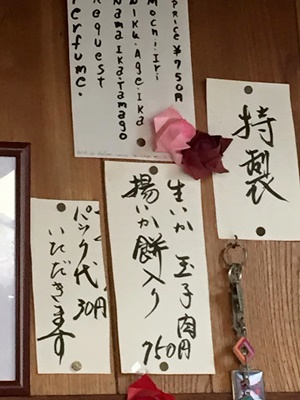 PRICE ¥750円
Mochi.Iri
Niku.Age.Ika
Nama.Ika.Tamago
Request
Perfume.
特製
生いか 玉子 肉
揚いか 餅入り
750円
パック代 30円
いただきます